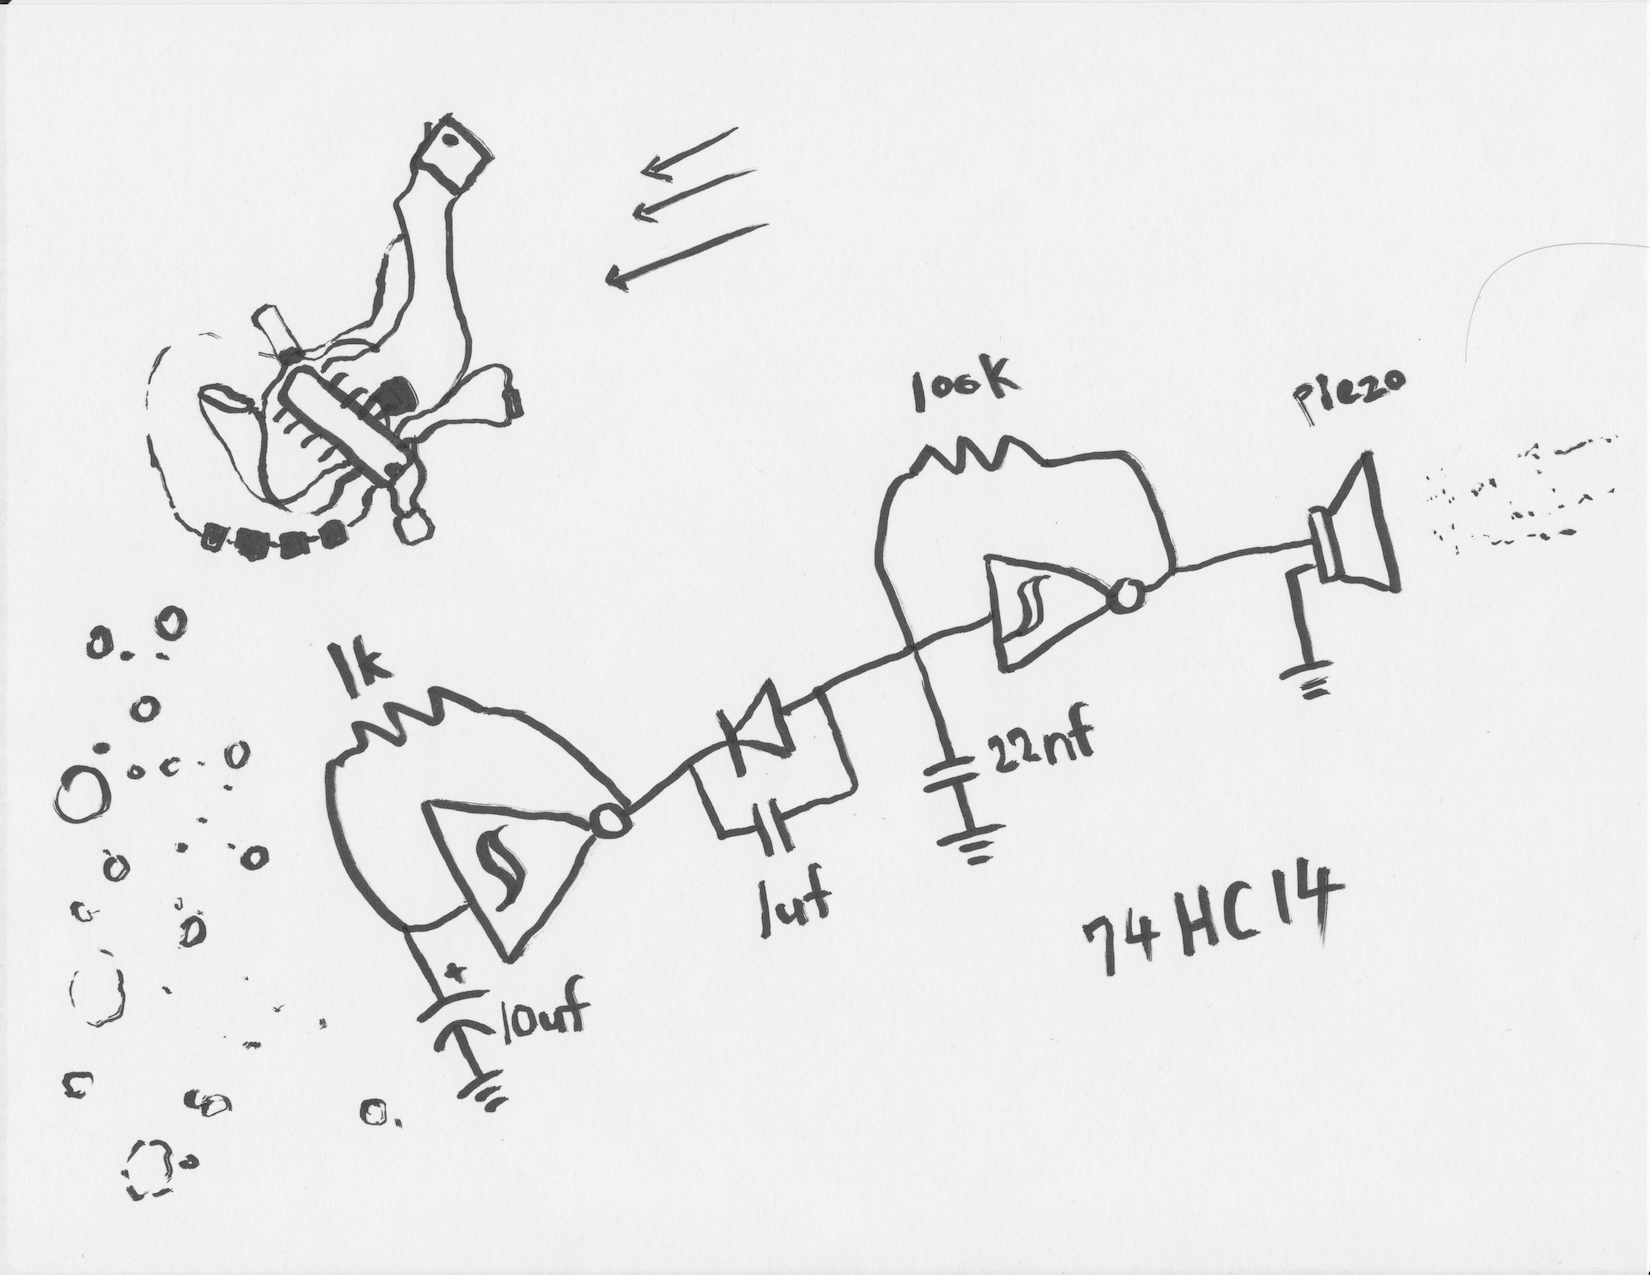 100K
piezo
1k
22nf
1uf
74HC14
+
10uf